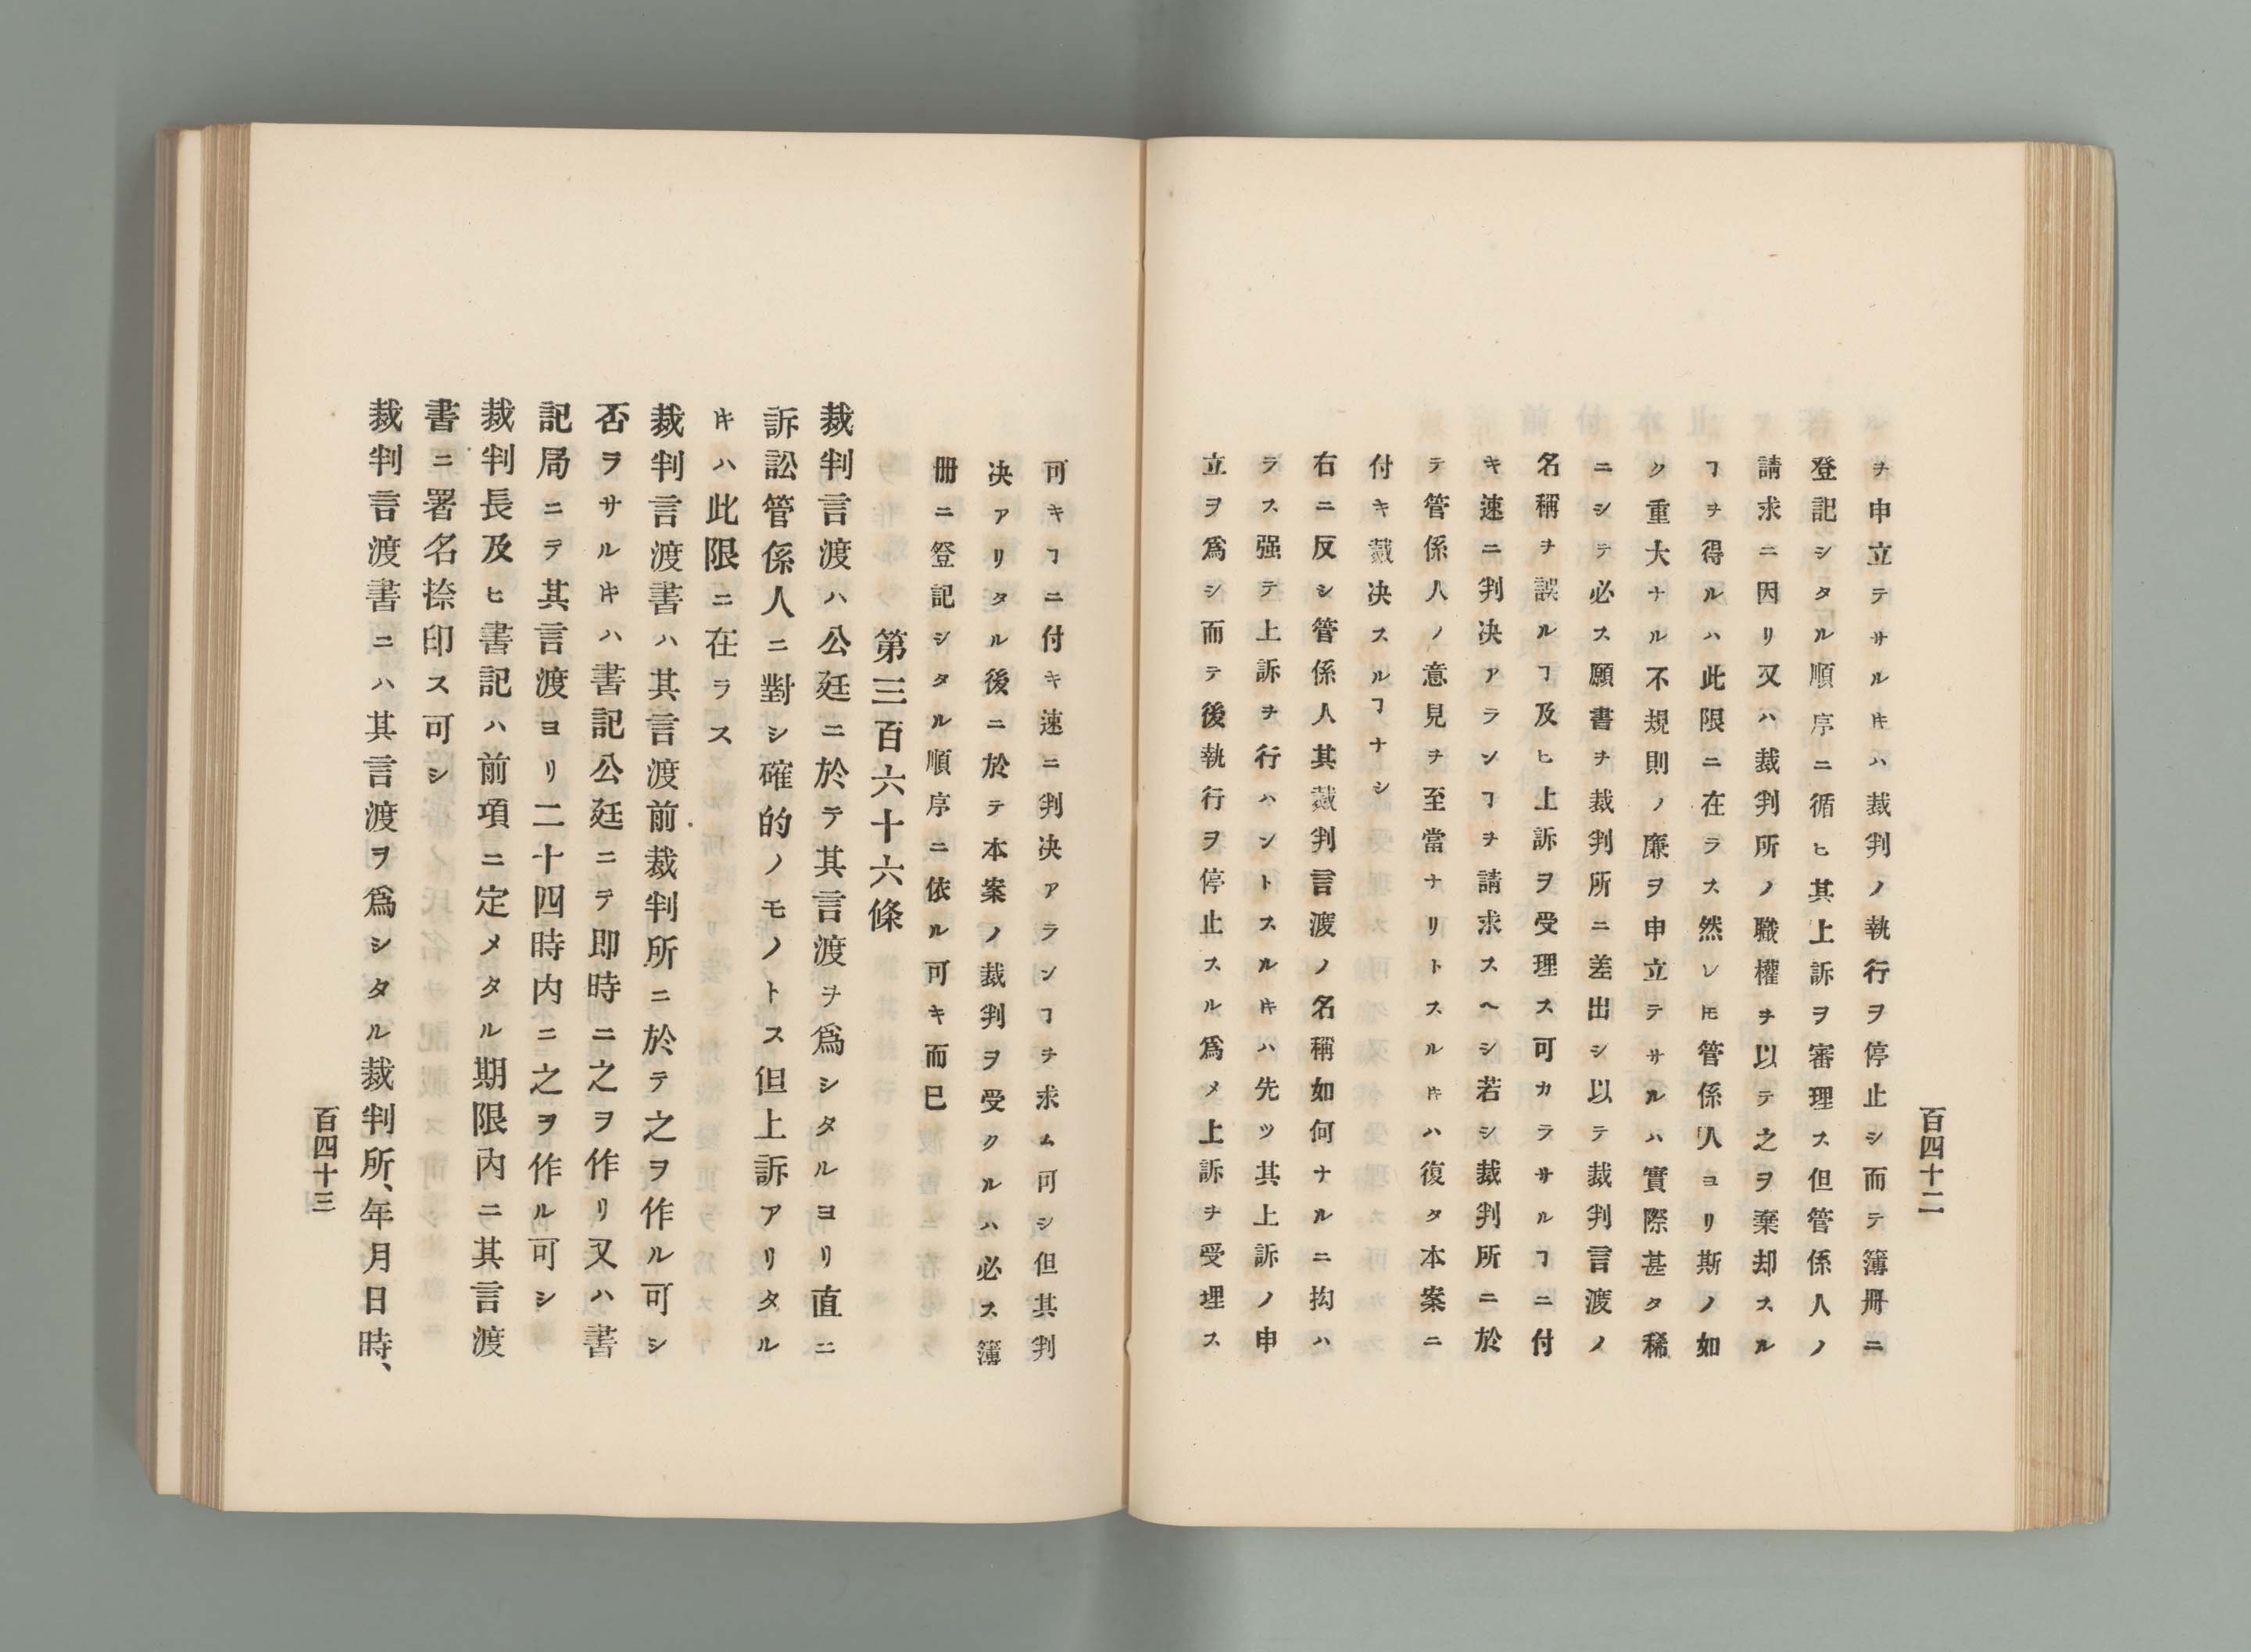 百四十二
ヲ申立テサルヰハ裁判ノ執行ヲ停止シ而テ簿冊ニ
登記シタル順序ニ循ヒ其上訴ヲ審理ス但管係人ノ
請求ニ因リ又ハ裁判所ノ職權ヲ以テ之ヲ棄却スル
ヿヲ得ルハ此限ニ在ラス然レ𪜈管係人ヨリ斯ノ如
ク重大ナル不規則ノ廉ヲ申立テサルハ實際甚タ稀
ニシテ必ス願書ヲ裁判所ニ差出シ以テ裁判言渡ノ
名稱ヲ誤ルヿ及ヒ上訴ヲ受理ス可カラサルヿニ付
キ速ニ判决アランヿヲ請求スヘシ若シ裁判所ニ於
テ管係人ノ意見ヲ至當ナリトスルヰハ復タ本案ニ
付キ裁决スルヿナシ
右ニ反シ管係人其裁判言渡ノ名稱如何ナルニ拘ハ
ラス强テ上訴ヲ行ハントスルヰハ先ツ其上訴ノ申
立ヲ爲シ而テ後執行ヲ停止スル爲メ上訴ヲ受理ス
可キヿニ付キ速ニ判决アランヿヲ求ム可シ但其判
决アリタル後ニ於テ本案ノ裁判ヲ受クルハ必ス簿
冊ニ登記シタル順序ニ依ル可キ而已
第三百六十六條
裁判言渡ハ公廷ニ於テ其言渡ヲ爲シタルヨリ直ニ
訴訟管係人ニ對シ確的ノモノトス但上訴アリタル
ヰハ此限ニ在ラス
裁判言渡書ハ其言渡前裁判所ニ於テ之ヲ作ル可シ
否ラサルヰハ書記公廷ニテ即時ニ之ヲ作リ又ハ書
記局ニテ其言渡ヨリ二十四時内ニ之ヲ作ル可シ
裁判長及ヒ書記ハ前項ニ定メタル期限内ニ其言渡
書ニ署名捺印ス可シ
裁判言渡書ニハ其言渡ヲ爲シタル裁判所、年月日時、
百四十三